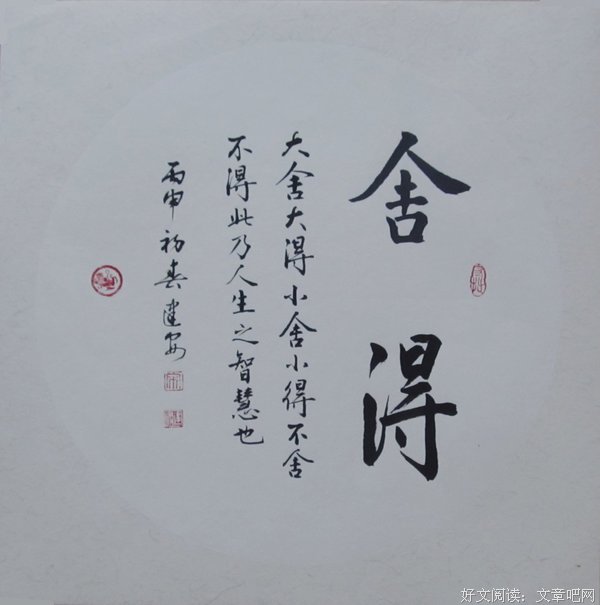 舍得
大舍大得小舍小得不舍
不得此乃人生之智慧也
丙申初春建安
好文阅读：文章吧网